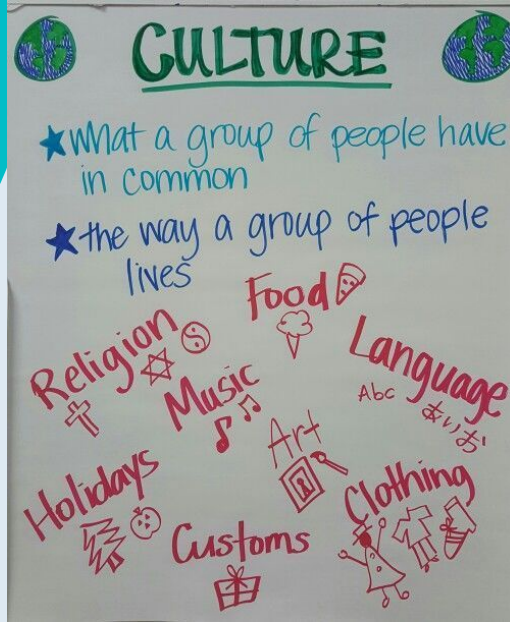 CULTURE
★what a group of people have
in common
★the way a group of people
lives
Food
Religion
Music
Language
Abc
あいお
Art
Holidays
Clothing
Customs